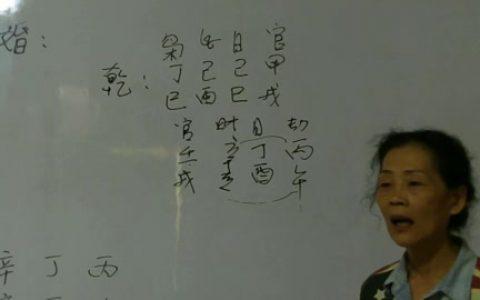 婚：
枭 比 日 官
乾： 丁 己 己 甲
巳 酉 巳 戌
官 财 日 劫
壬 辛 丁 丙
戌 亥 酉 午
辛 丁 丙